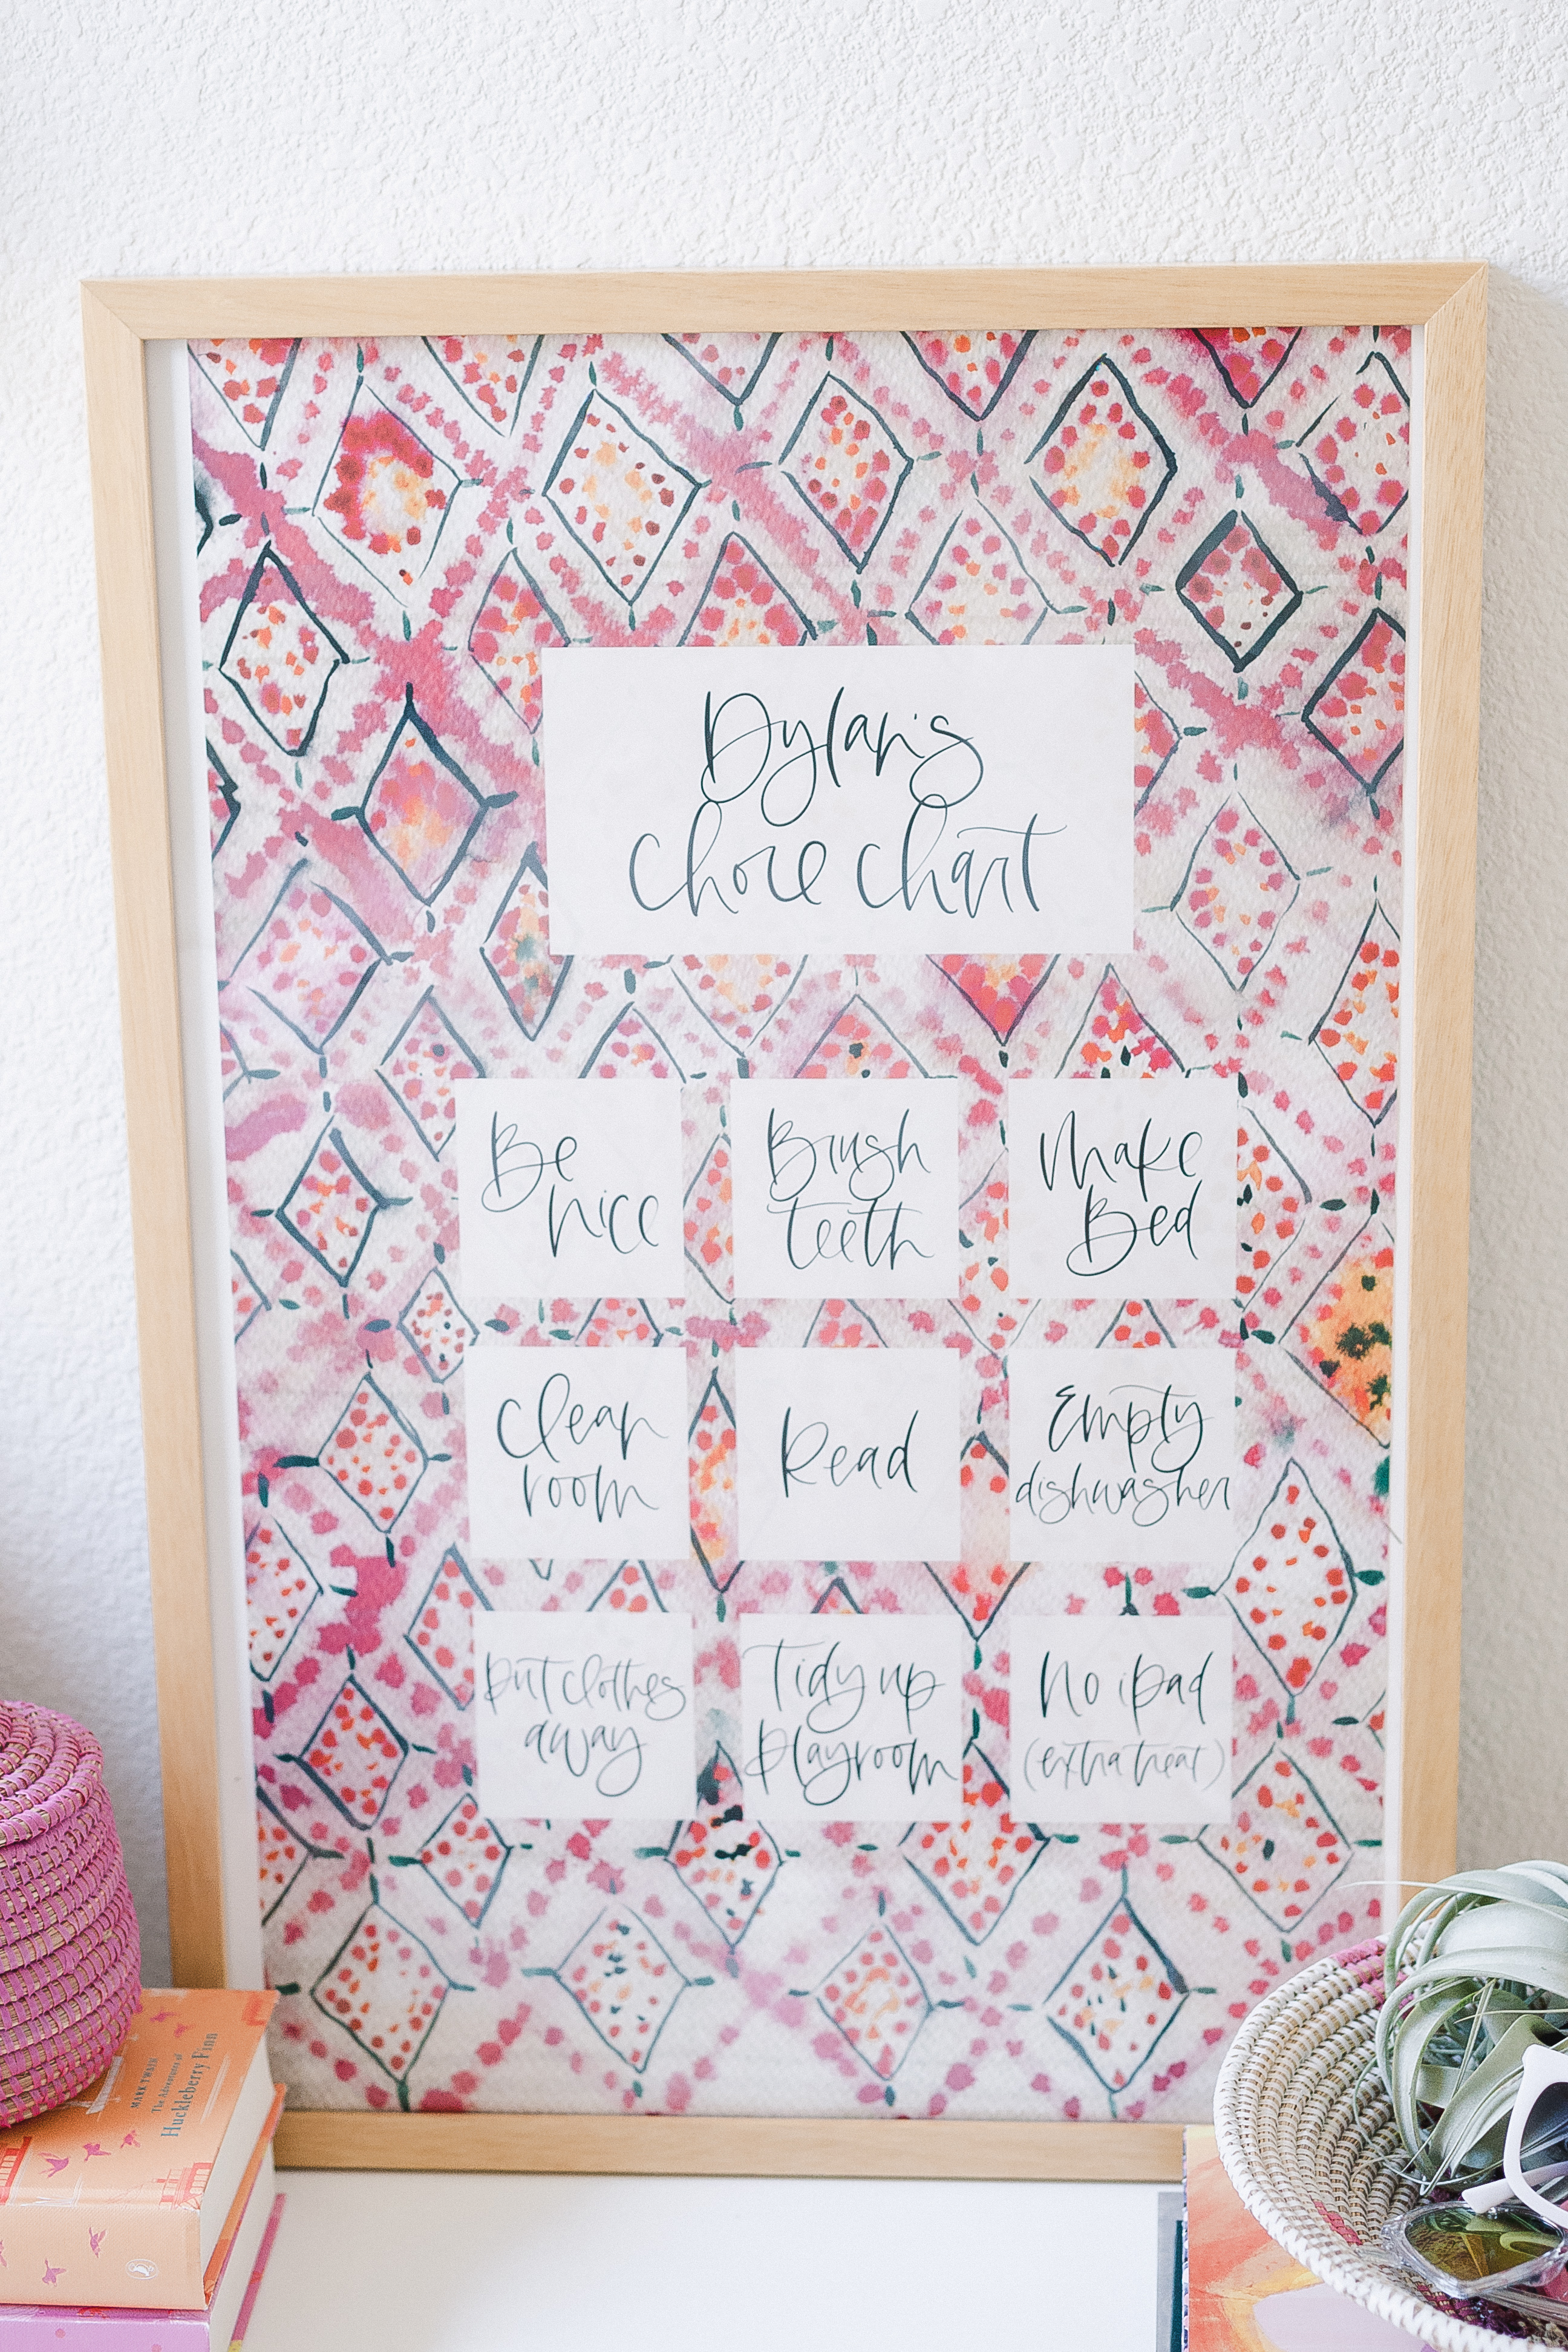 Dylan's
chore chart
Be
nice
Brush
teeth
Make
Bed
Clean
room
Read
Empty
dishwasher
put clothes
away
Tidy up
playroom
No iPad
(extra treat)
MARK TWAIN
The Adventures of
Huckleberry Finn